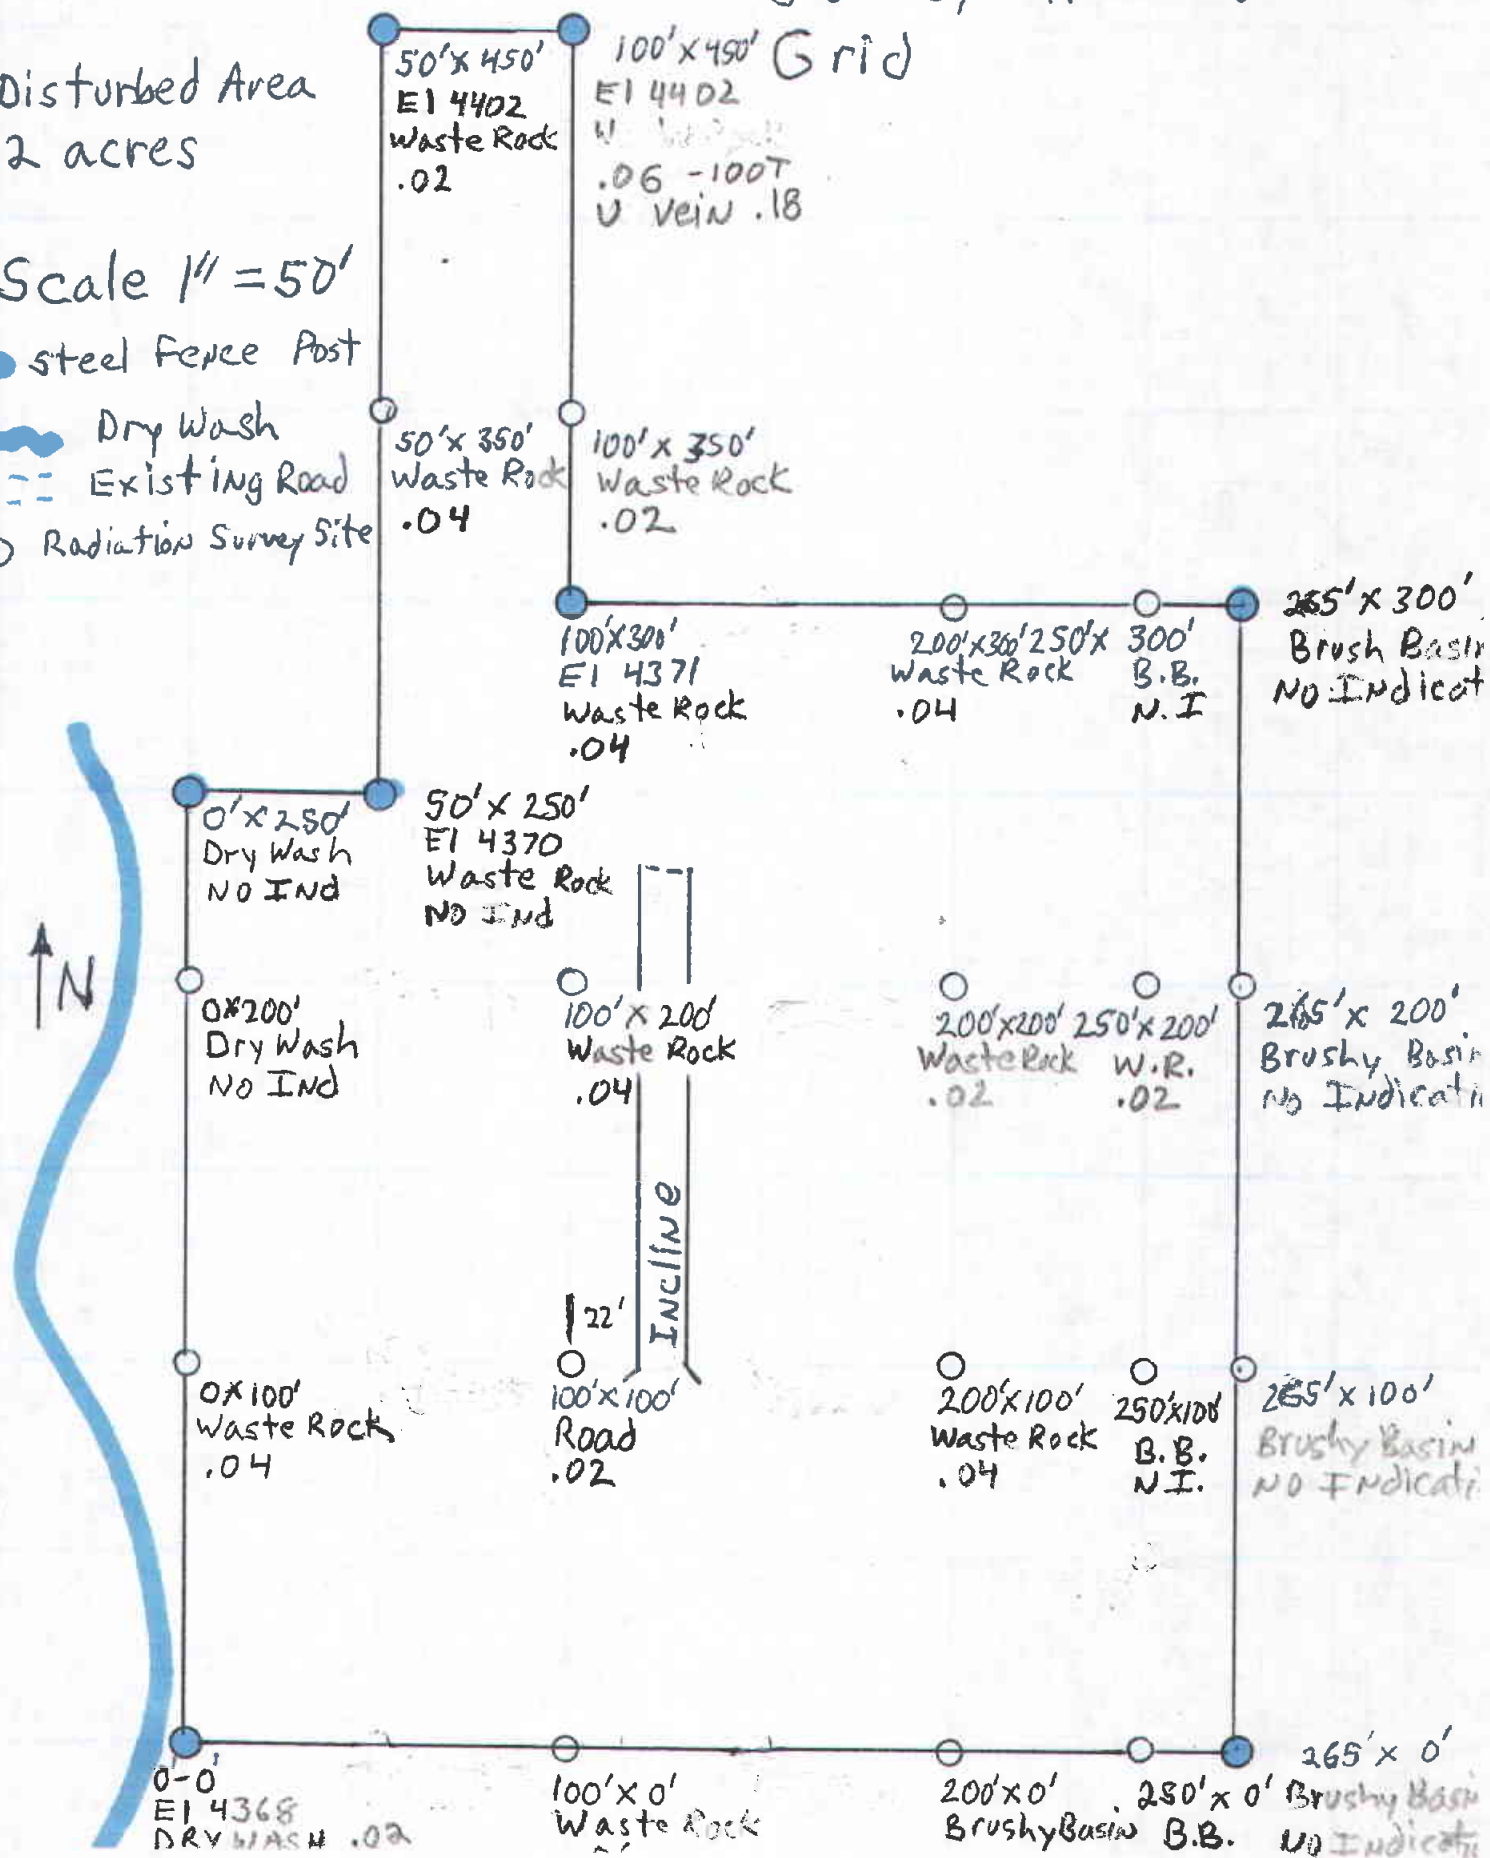 Grid
Disturbed Area
2 acres
Scale 1" = 50'
steel Fence Post
Dry Wash
Existing Road
Radiation Survey Site
50' x 450'
El 4402
Waste Rock
.02
100' x 450'
El 4402
W
.06 -100T
U Vein .18
50' x 350'
Waste Rock
.04
100' x 350'
Waste Rock
.02
100' x 300'
El 4371
Waste Rock
.04
200' x 300'
Waste Rock
.04
250' x 300'
B.B.
N.I
265' x 300'
Brush Basin
No Indicat
0' x 250'
Dry Wash
No Ind
50' x 250'
El 4370
Waste Rock
No Ind
N
0x200'
Dry Wash
No Ind
100' x 200'
Waste Rock
.04
200' x 200'
Waste Rock
.02
250' x 200'
W.R.
.02
265' x 200'
Brushy Basin
No Indicati
Incline
22'
0x100'
Waste Rock
.04
100' x 100'
Road
.02
200' x 100'
Waste Rock
.04
250' x 100'
B.B.
N.I.
265' x 100'
Brushy Basin
No Indicati
0'-0'
El 4368
DRY WASH .02
100' x 0'
Waste Rock
200' x 0'
Brushy Basin
250' x 0'
B.B.
265' x 0'
Brushy Basin
No Indicati